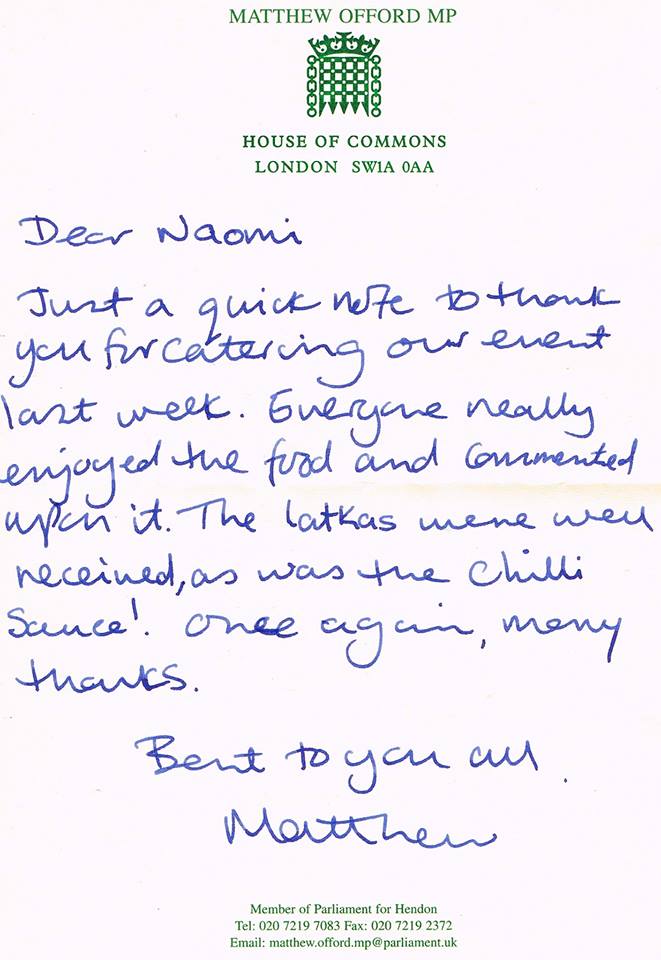 MATTHEW OFFORD MP
HOUSE OF COMMONS
LONDON SW1A 0AA
Dear Naomi
Just a quick note to thank
you for catering our event
last week. Everyone really
enjoyed the food and commented
upon it. The latkas were well
received, as was the Chilli
Sauce! Once again, many
thanks.
Best to you all.
Matthew
Member of Parliament for Hendon
Tel: 020 7219 7083 Fax: 020 7219 2372
Email: matthew.offord.mp@parliament.uk